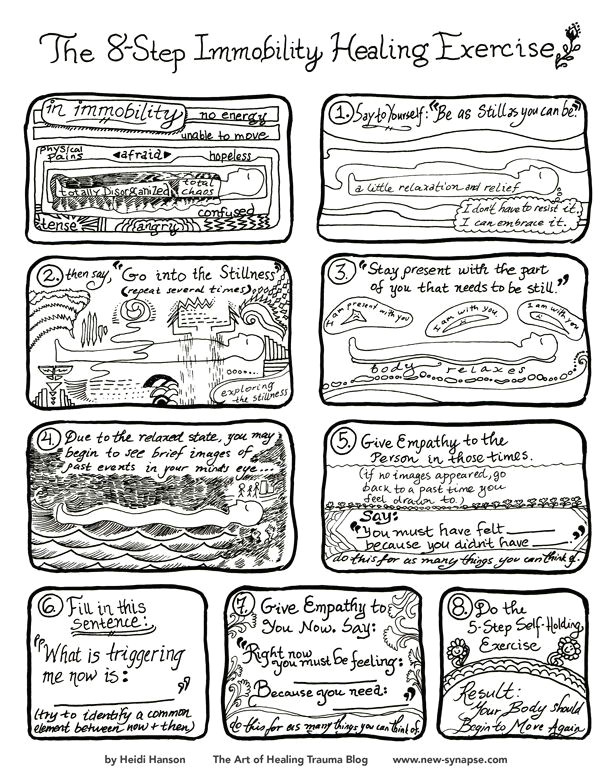 The 8-Step Immobility Healing Exercise
in immobility
no energy
unable to move
physical
pains
afraid
hopeless
totally Disorganized
total
chaos
confused
tense
angry
1. Say to Yourself: "Be as Still as you can be."
a little relaxation and relief
I don't have to resist it.
I can embrace it.
2. then say, "Go into the Stillness"
(repeat several times)
exploring
the stillness
3. "Stay present with the part
of you that needs to be still."
I am present with you
I am with you
I am with you
body relaxes
4. Due to the relaxed state, you may
begin to see brief images of
past events in your minds eye...
5. Give Empathy to the
Person in those times.
(if no images appeared, go
back to a past time you
feel drawn to.)
Say:
"You must have felt ____
because you didn't have ____"
do this for as many things you can think of.
6. Fill in this
sentence:
"What is triggering
me now is:
____"
(try to identify a common
element between now + then)
7. Give Empathy to
You Now. Say:
"Right now
you must be feeling:
____
Because you need:
____"
do this for as many things you can think of.
8. Do the
5-Step Self-Holding
Exercise
Result:
Your Body should
Begin to Move Again
by Heidi Hanson The Art of Healing Trauma Blog www.new-synapse.com